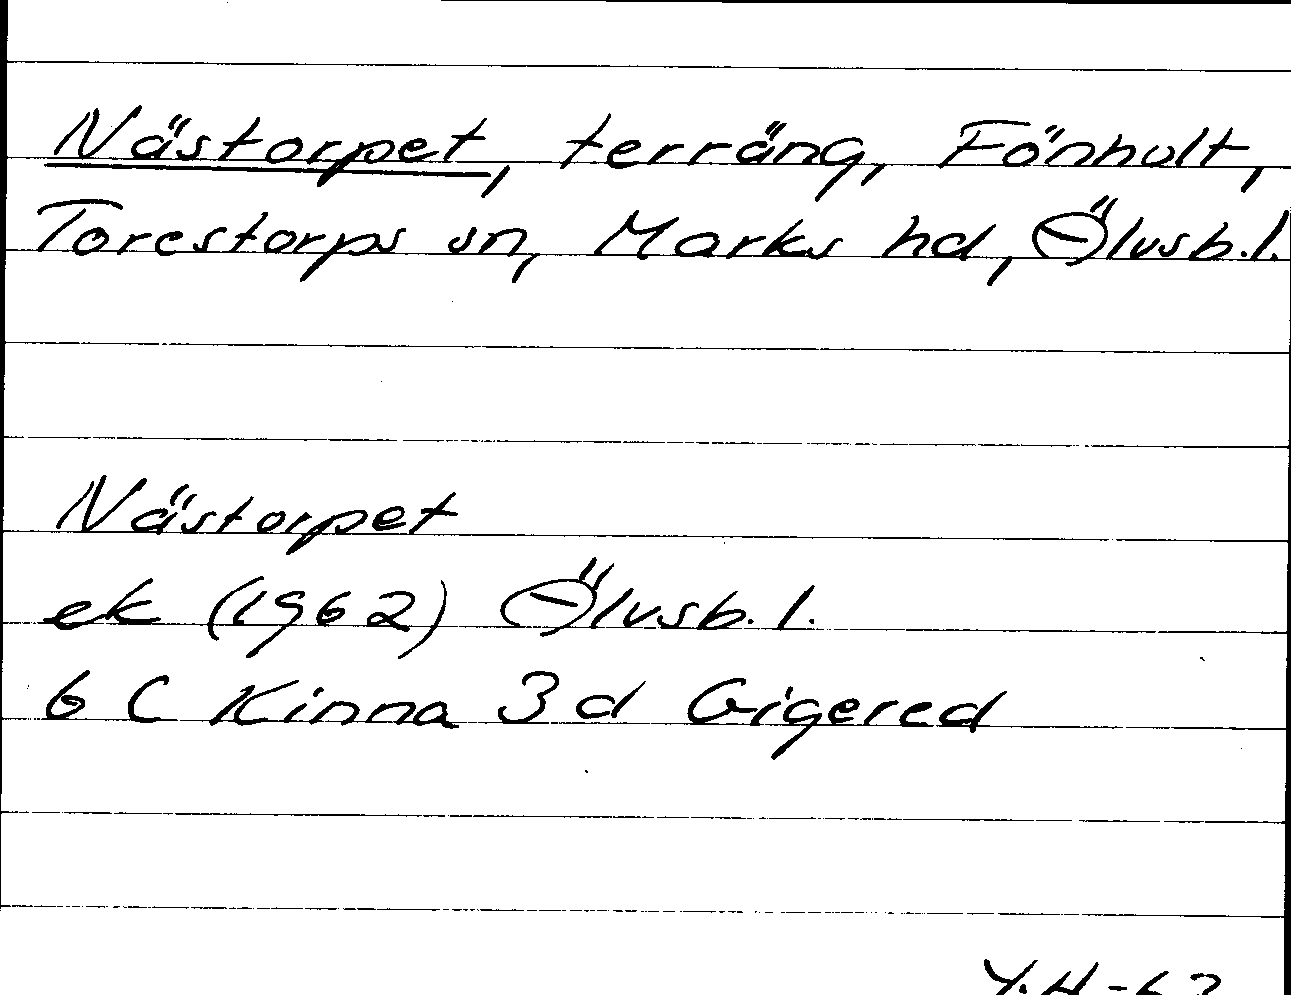 Nästorpet, terräng, Fönhult,
Torestorps sn, Marks hd, Älvsb. l.
Nästorpet
ek (1962) Älvsb. l.
6 C Kinna 3 d Gigered